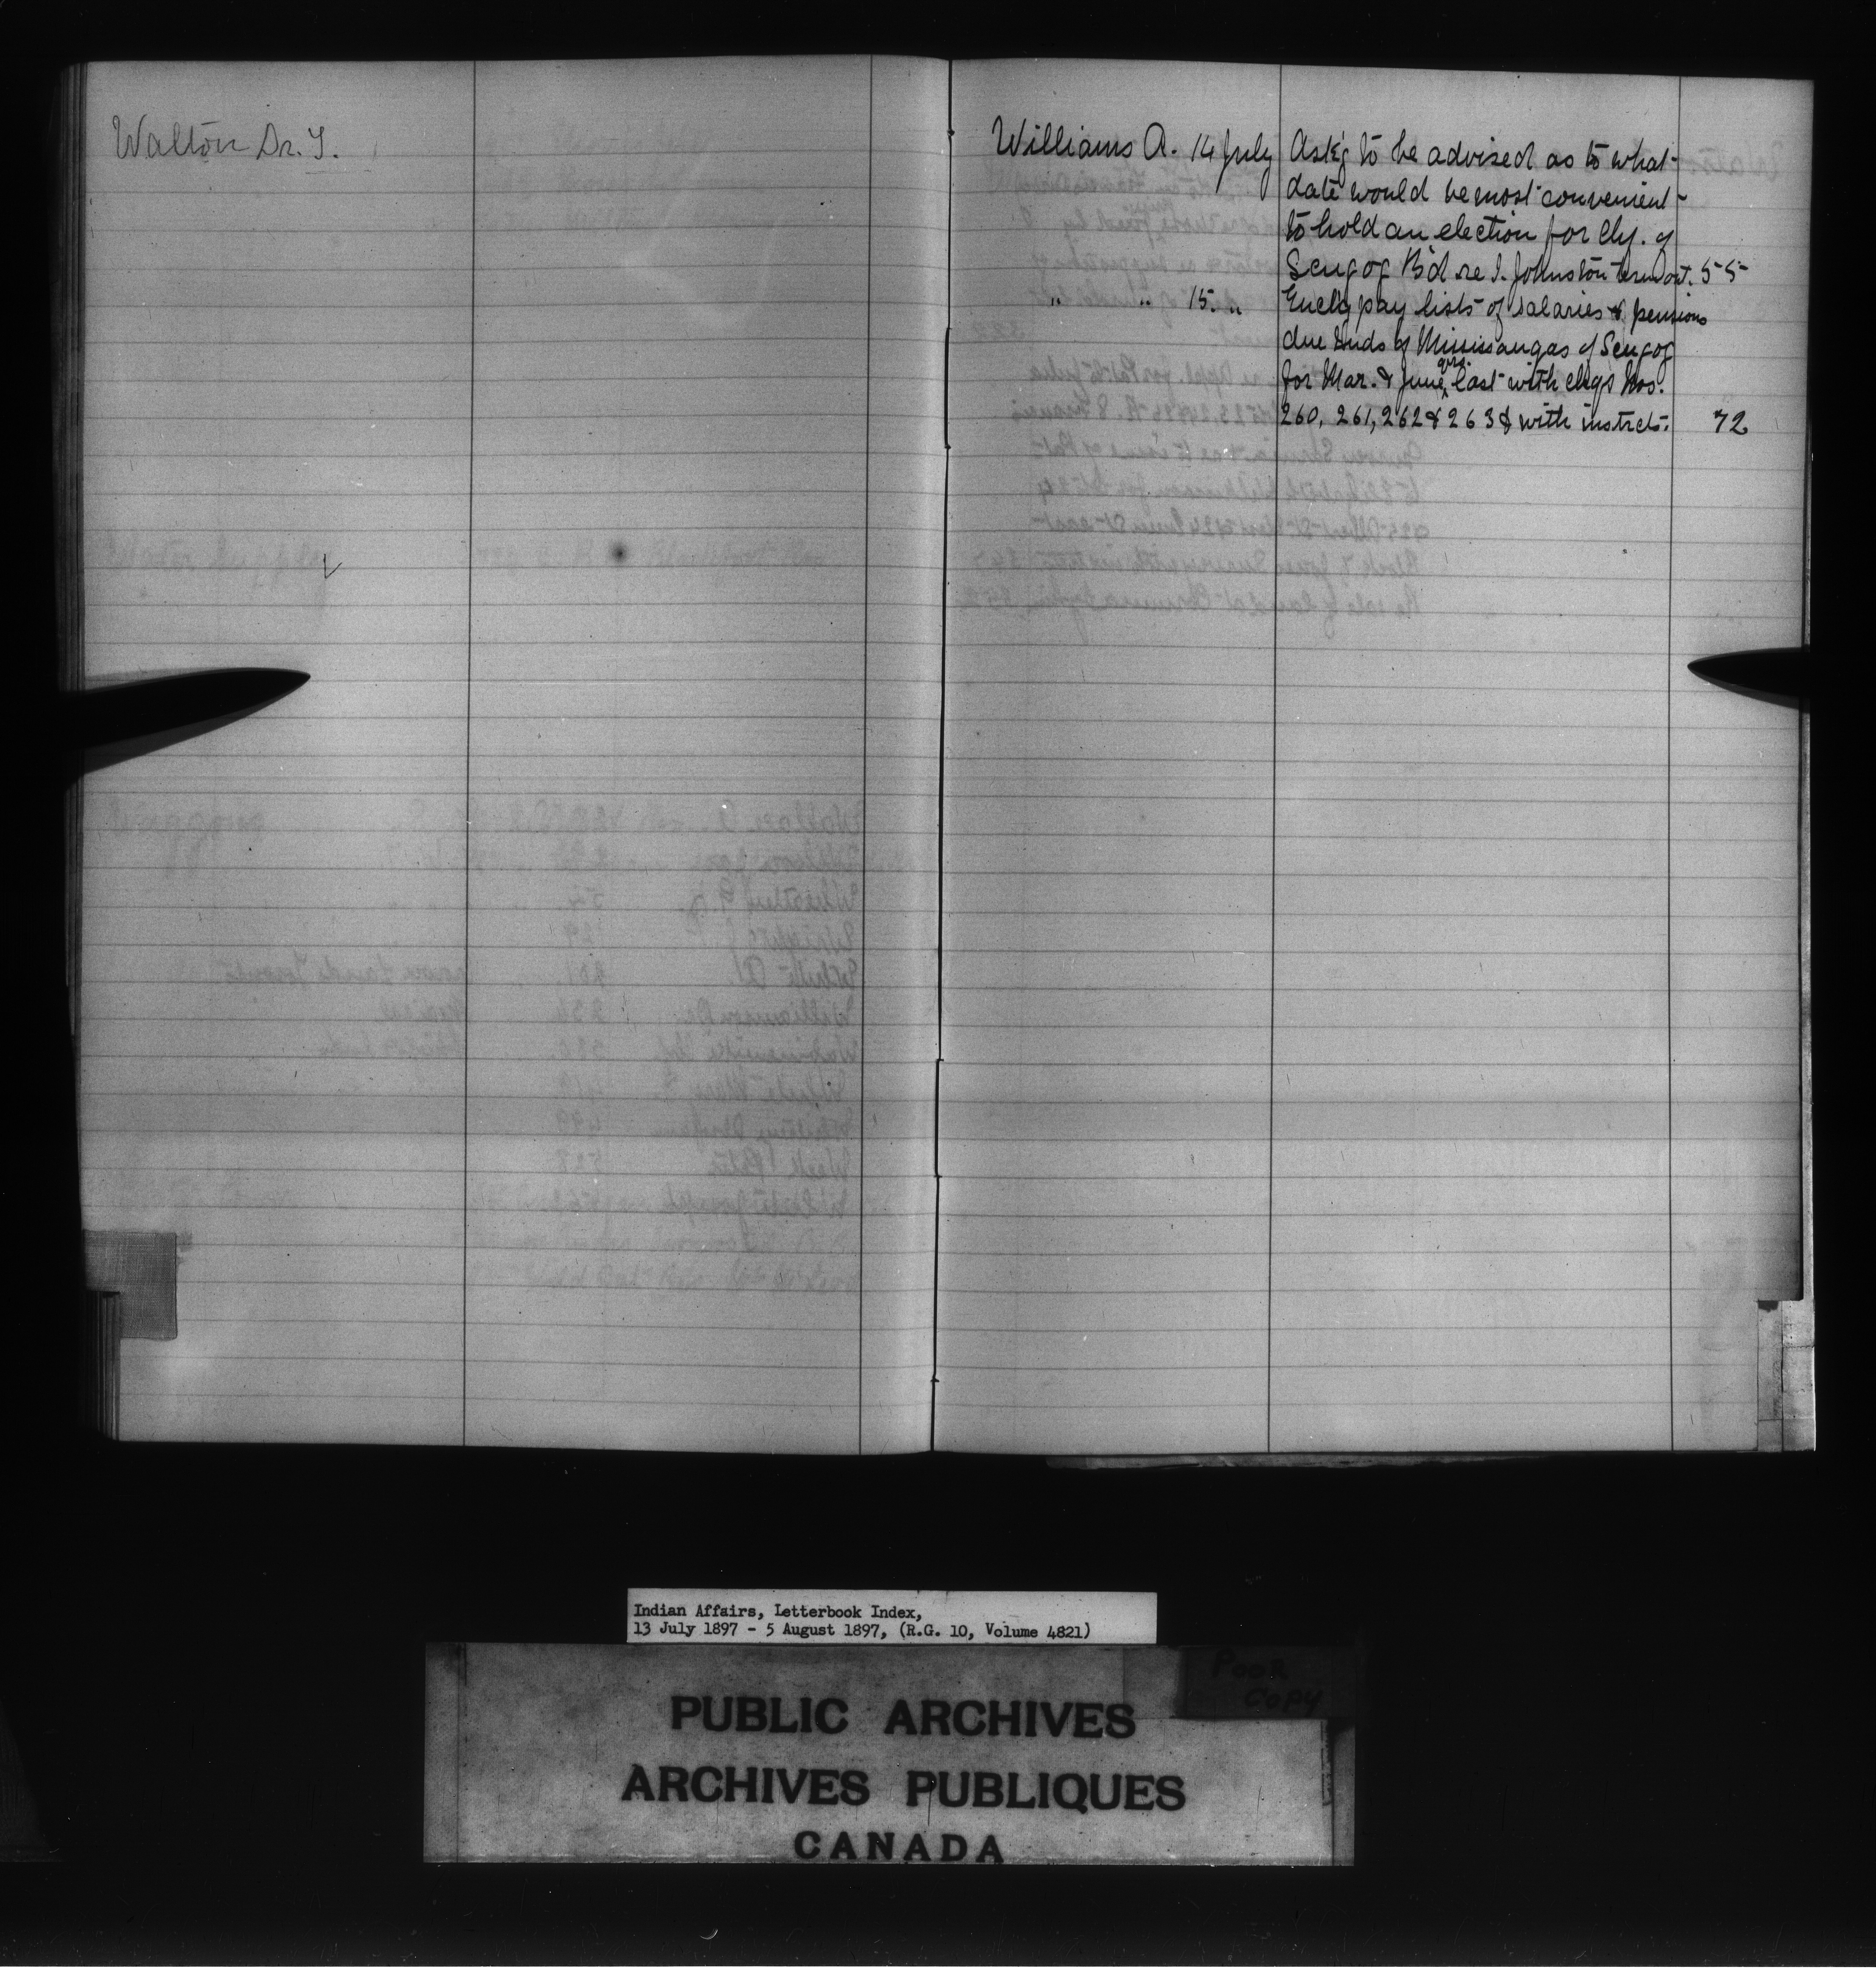 Walton Dr. T.
Water Supply
Williams A. 14 July Ask'g to be advised as to what
date would be most convenient
to hold an election for Chf. of
Scugog B'd re I. Johnston term out. 55
" " 15. " Encl'g pay lists of salaries & pensions
due Inds of Mississaugas of Scugog
for Mar. & June qrs. last with chqs Nos.
260, 261, 262 & 263 & with instrcts. 72
Indian Affairs, Letterbook Index,
13 July 1897 - 5 August 1897, (R.G. 10, Volume 4821)
Poor
Copy
PUBLIC ARCHIVES
ARCHIVES PUBLIQUES
CANADA